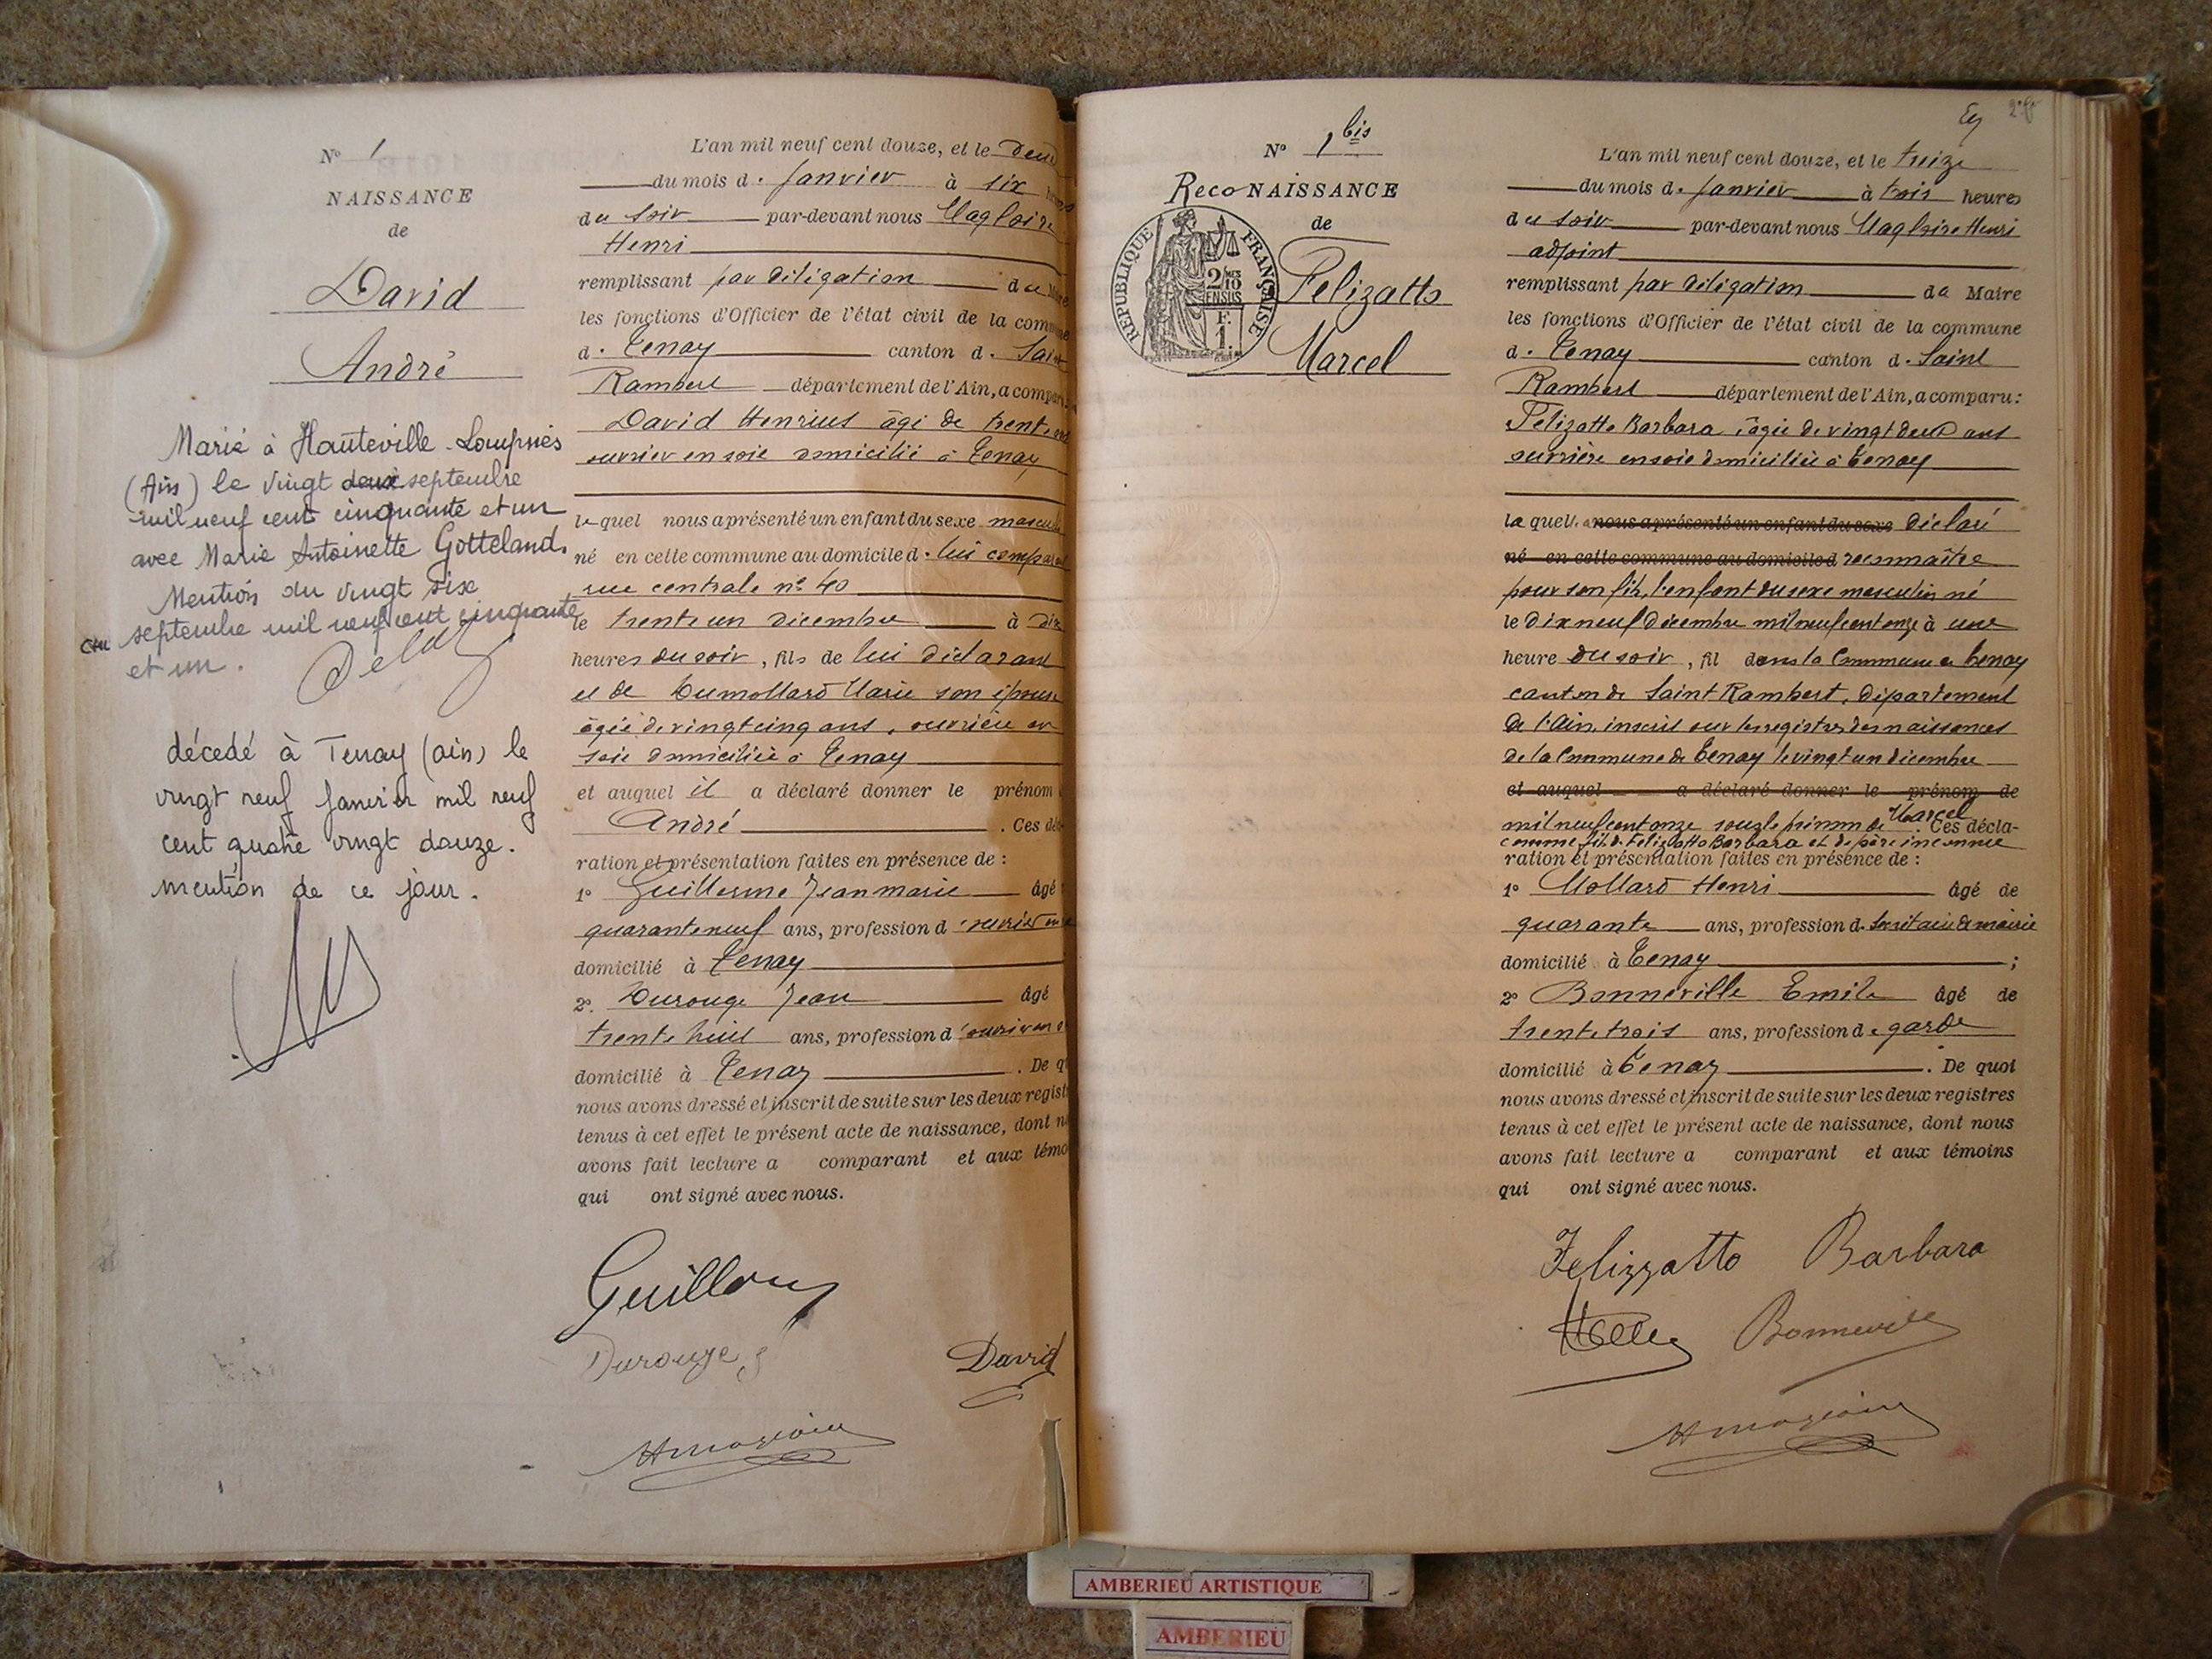 N° 1
NAISSANCE
de
David
André
Marié à Hauteville-Lompnès
(Ain) le vingt deux septembre
mil neuf cent cinquante et un
avec Marie Antoinette Gotteland.
Mention du vingt six
septembre mil neuf cent cinquante
et un.
décedé à Tenay (ain) le
vingt neuf Janvier mil neuf
cent quatre vingt douze.
mention de ce jour.
L'an mil neuf cent douze, et le deux
du mois de Janvier à six
du soir par-devant nous Magloire
Henri
remplissant par délégation du
les fonctions d'Officier de l'état civil de la commune
de Tenay canton de Saint
Rambert département de l'Ain, a comparu
David Henrius âgé de trente
ouvrier en soie domicilié à Tenay
lequel nous a présenté un enfant du sexe masculin
né en cette commune au domicile de lui comparant
rue centrale n° 40
le trente un décembre à dix
heures du soir, fils de lui déclarant
et de Dumollard Marie son épouse
âgée de vingt cinq ans, ouvrière en
soie domiciliée à Tenay
et auquel il a déclaré donner le prénom
André. Ces décla
ration et présentation faites en présence de :
1° Guillerme Jean marie âgé
quarante neuf ans, profession d'ouvrier en
domicilié à Tenay
2° Durouge Jean âgé
trente huit ans, profession d'ouvrier en
domicilié à Tenay. De q
nous avons dressé et inscrit de suite sur les deux regist
tenus à cet effet le présent acte de naissance, dont n
avons fait lecture a comparant et aux témo
qui ont signé avec nous.
Durouge J
David
HMagloire
N° 1 bis
RecoNAISSANCE
de
Felizatto
Marcel
RÉPUBLIQUE FRANÇAISE
2/10
EN SUS
F.
1.
L'an mil neuf cent douze, et le treize
du mois de Janvier à trois heures
du soir par-devant nous Magloire Henri
adjoint
remplissant par délégation du Maire
les fonctions d'Officier de l'état civil de la commune
de Tenay canton de Saint
Rambert département de l'Ain, a comparu :
Felizatto Barbara âgée de vingt deux ans
ouvrière en soie domiciliée à Tenay
laquelle a nous a présenté un enfant du sexe déclaré
né en cette commune au domicile d reconnaître
pour son fils, l'enfant du sexe masculin né
le dix neuf décembre mil neuf cent onze à une
heure du soir, fil dans la Commune de Tenay
canton de Saint Rambert, département
de l'Ain, inscrit sur les registres des naissances
de la Commune de Tenay le vingt un décembre
et auquel a déclaré donner le prénom de
mil neuf cent onze sous le prénom de Marcel. Ces décla-
comme fils de Felizatto Barbara et de père inconnu
ration et présentation faites en présence de :
1° Mollard Henri âgé de
quarante ans, profession de Secrétaire de mairie
domicilié à Tenay ;
2° Bonneville Emile âgé de
trente trois ans, profession de garde
domicilié à Tenay. De quoi
nous avons dressé et inscrit de suite sur les deux registres
tenus à cet effet le présent acte de naissance, dont nous
avons fait lecture a comparant et aux témoins
qui ont signé avec nous.
Felizzatto Barbara
Bonneville
HMagloire
AMBERIEU ARTISTIQUE
AMBERIEU